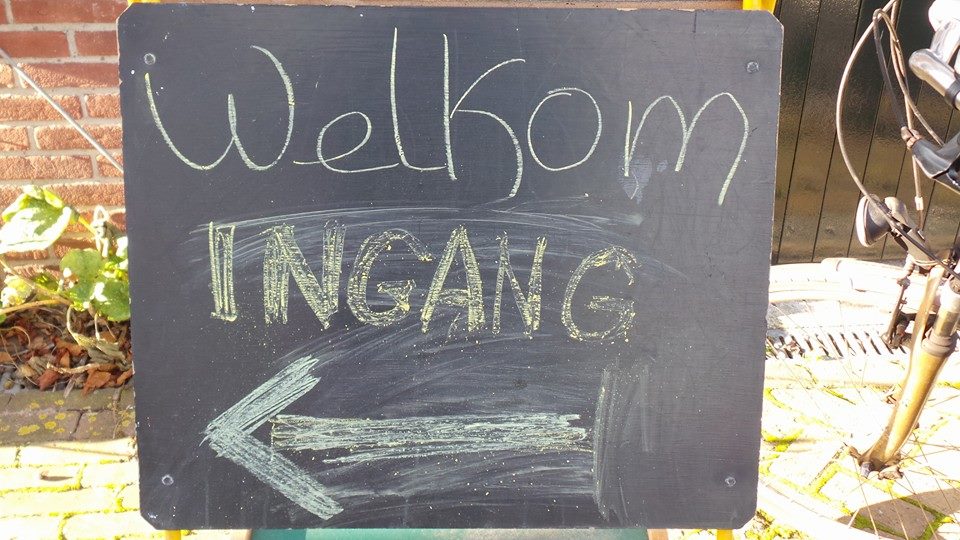 Welkom
INGANG